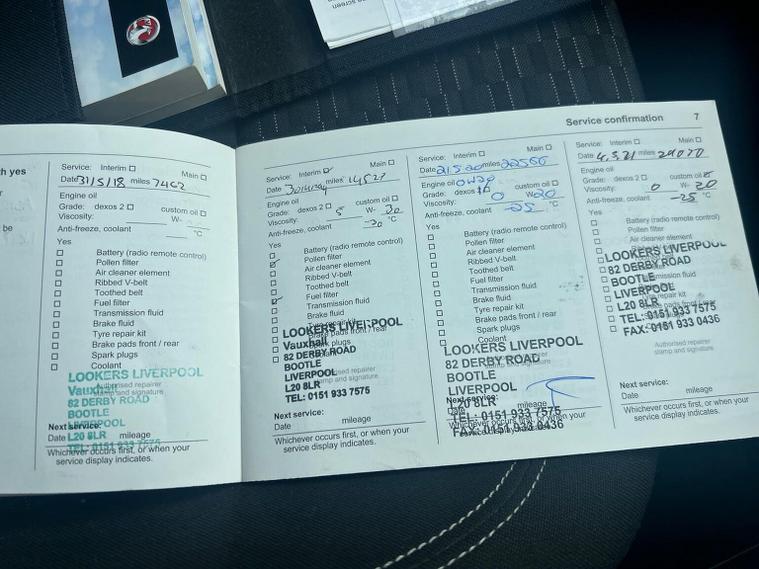 screen
Service confirmation 7
th yes
be
Service: Interim ☐ Main ☐
Date 31/5/18 miles 7462
Engine oil
Grade: dexos 2 ☐ custom oil ☐
Viscosity: W-
Anti-freeze, coolant °C
Yes
☐ Battery (radio remote control)
☐ Pollen filter
☐ Air cleaner element
☐ Ribbed V-belt
☐ Toothed belt
☐ Fuel filter
☐ Transmission fluid
☐ Brake fluid
☐ Tyre repair kit
☐ Brake pads front / rear
☐ Spark plugs
☐ Coolant
LOOKERS LIVERPOOL
Authorised repairer
Vauxhall
stamp and signature
82 DERBY ROAD
BOOTLE
LIVERPOOL
Next service:
Date L20 8LR mileage
TEL: 0151 933 7575
Whichever occurs first, or when your
service display indicates.
Service: Interim ☑ Main ☐
Date miles 14527
Engine oil
Grade: dexos 2 ☐ custom oil ☐
Viscosity: 5 W- 30
Anti-freeze, coolant -30 °C
Yes
Battery (radio remote control)
Pollen filter
Air cleaner element
Ribbed V-belt
Toothed belt
Fuel filter
Transmission fluid
Brake fluid
Tyre repair kit
LOOKERS LIVERPOOL
Brake pads front / rear
Vauxhall
Spark plugs
82 DERBY ROAD
BOOTLE
Authorised repairer
LIVERPOOL
stamp and signature
L20 8LR
TEL: 0151 933 7575
Next service:
Date mileage
Whichever occurs first, or when your
service display indicates.
Service: Interim ☐ Main ☐
Date 21520 miles 22560
Engine oil 0W20
Grade: dexos custom oil ☐
Viscosity: 0 W- 20
Anti-freeze, coolant -25 °C
Yes
☐ Battery (radio remote control)
☐ Pollen filter
☐ Air cleaner element
☐ Ribbed V-belt
☐ Toothed belt
☐ Fuel filter
☐ Transmission fluid
☐ Brake fluid
☐ Tyre repair kit
☐ Brake pads front / rear
☐ Spark plugs
☐ Coolant
LOOKERS LIVERPOOL
82 DERBY ROAD
BOOTLE
LIVERPOOL
L20 8LR
Next service:
Date mileage
TEL: 0151 933 7575
FAX: 0151 933 0436
Whichever occurs first, or when your
service display indicates.
Service: Interim ☐ Main ☐
Date 4.5.21 miles
Engine oil
Grade: dexos 2 ☐ custom oil ☑
Viscosity: 0 W- 20
Anti-freeze, coolant -25 °C
Yes
☐ Battery (radio remote control)
☐ Pollen filter
☐ Air cleaner element
LOOKERS LIVERPOOL
82 DERBY ROAD
BOOTLE
Transmission fluid
LIVERPOOL
L20 8LR
repair kit
TEL: 0151 933 7575
FAX: 0151 933 0436
Authorised repairer
stamp and signature
Next service:
Date mileage
Whichever occurs first, or when your
service display indicates.